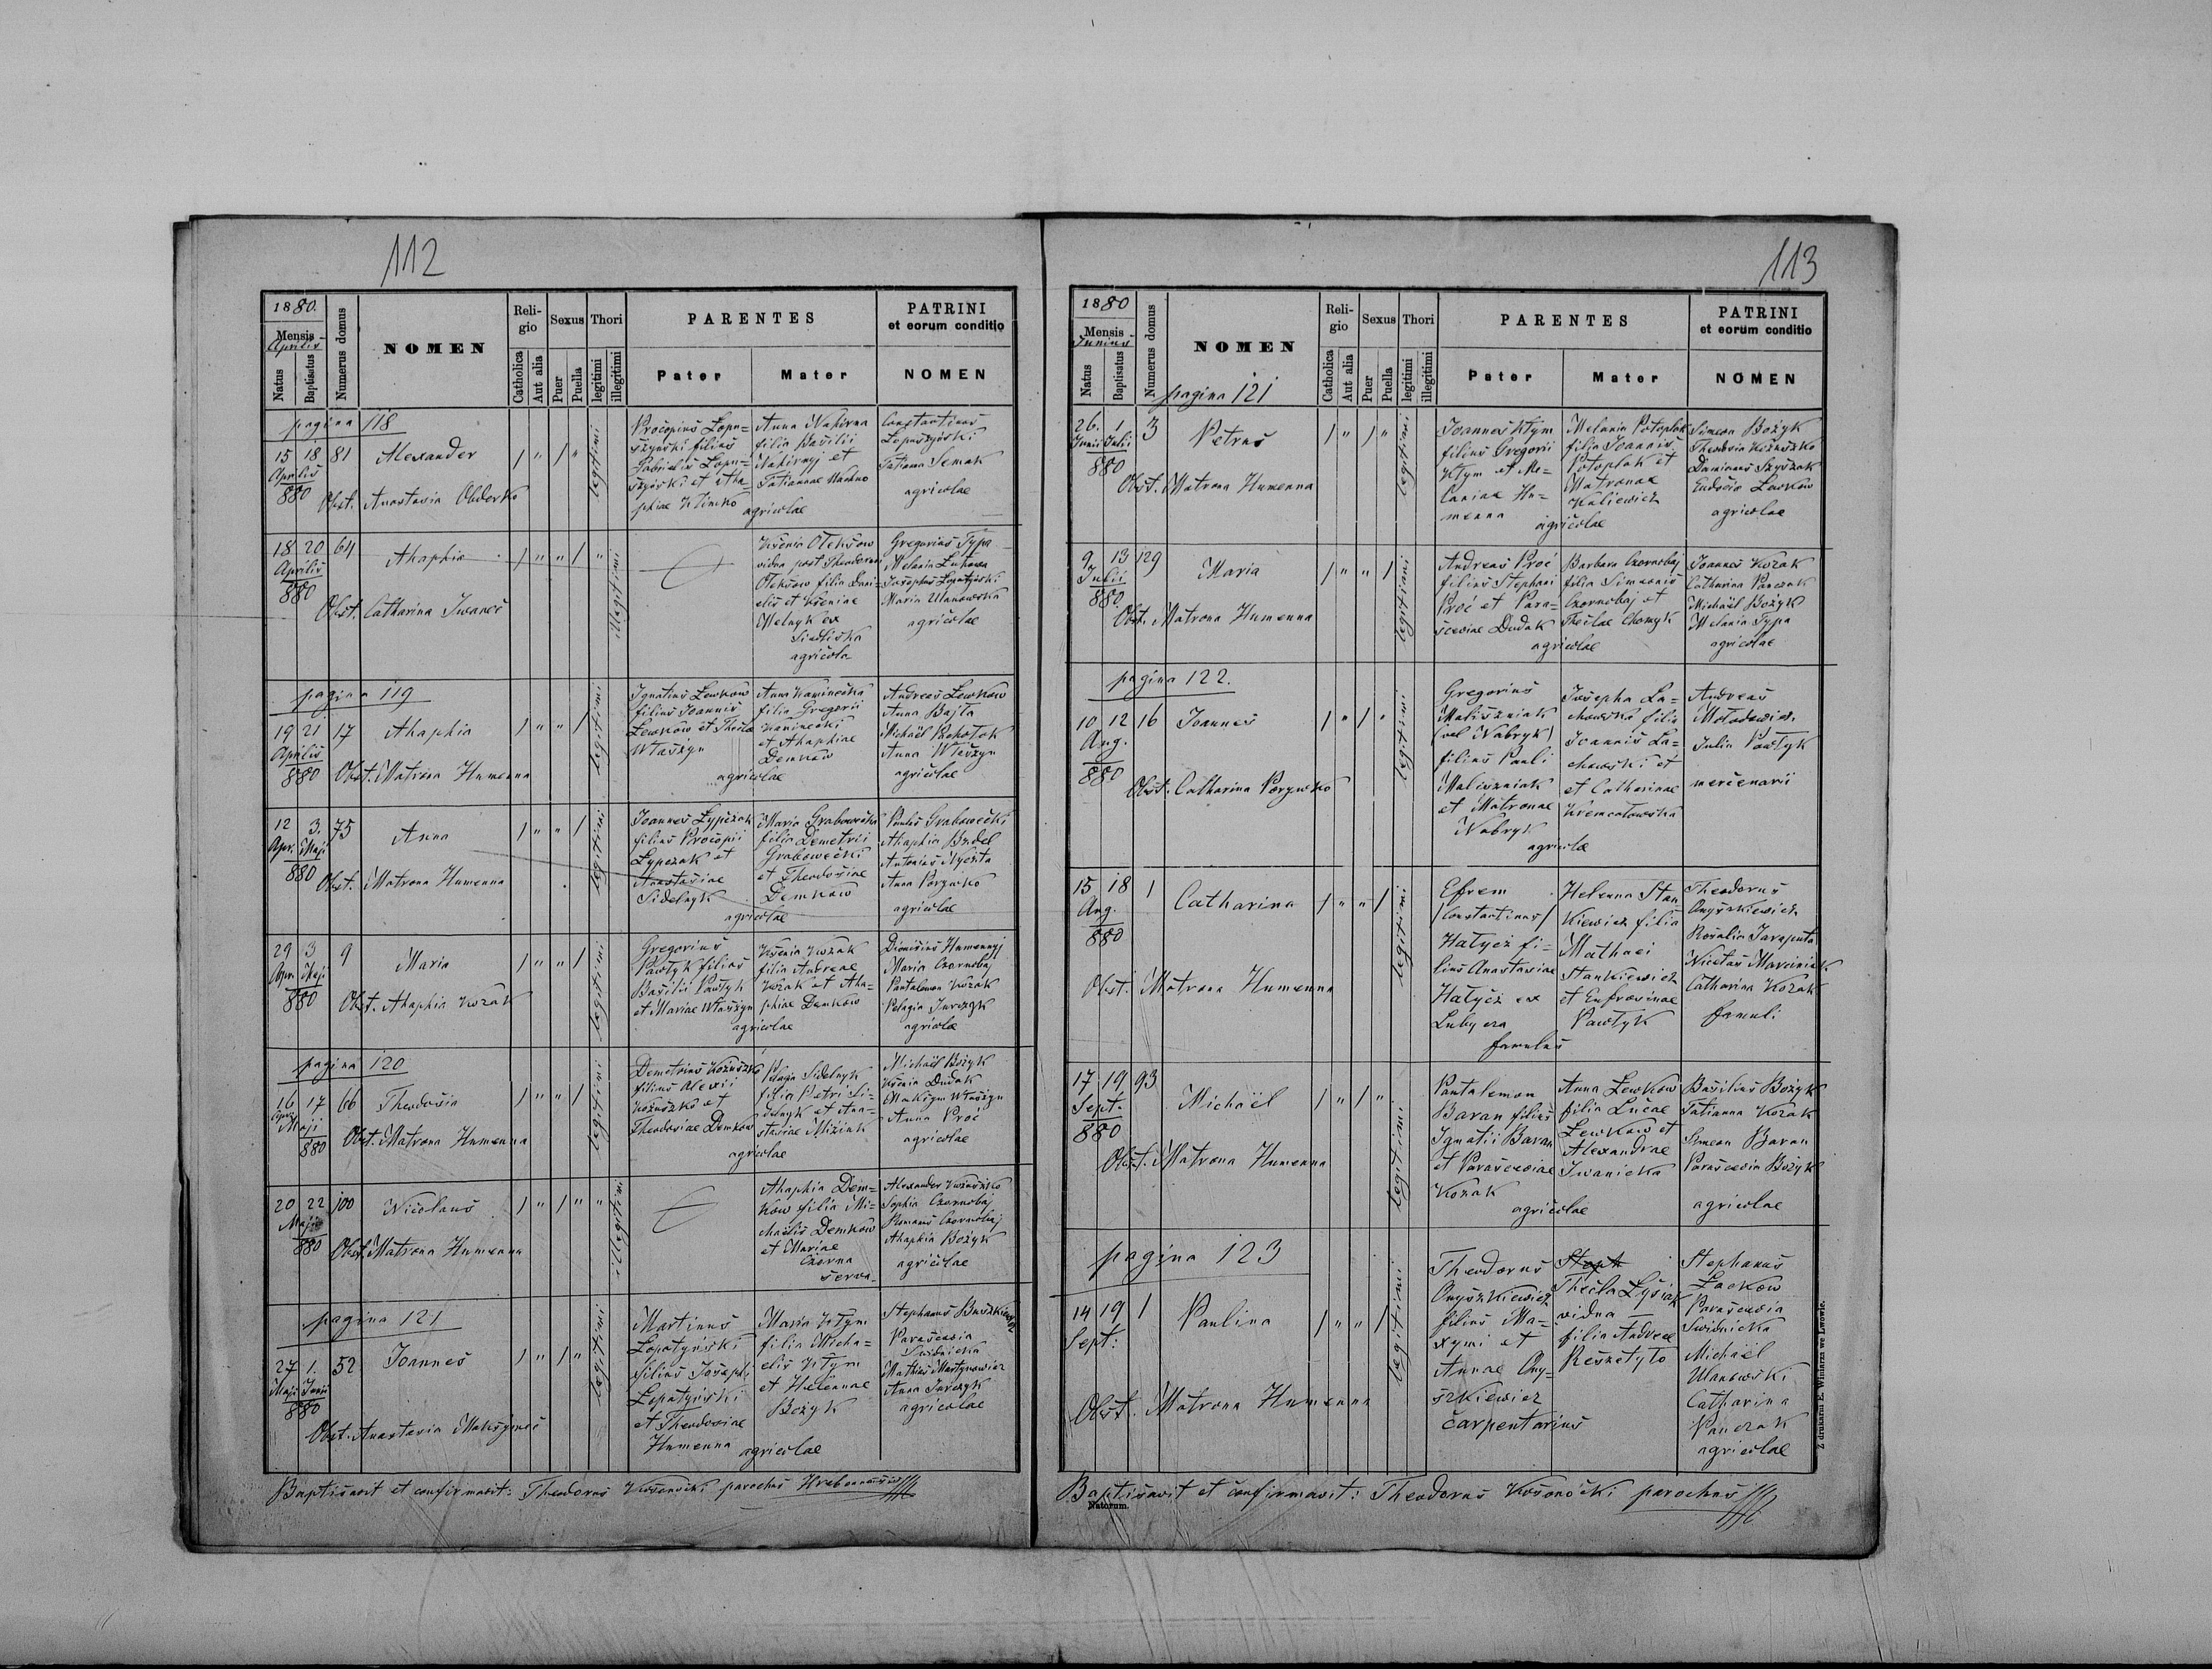 112
1880.
Mensis
Aprilis
Natus
Baptisatus
Numerus domus
NOMEN
Religio
Catholica
Aut alia
Sexus
Puer
Puella
Thori
legitimi
illegitimi
PARENTES
Pater
Mater
PATRINI
et eorum conditio
NOMEN
pagina 118
15 18 81 Alexander
Aprilis
880
Obst. Anastasia Obderko
legitimi
Procopius Lopu=
szyński filius
Gabrielis Lopu=
szyński et Aha=
phiae Klimko
Anna Nakirna
filia Basilii
Nakirnyj et
Tatiannae
agricolae
Constantinus
Lopuszyński
Tatiana Semak
agricolae
18 20 64 Ahaphia
Aprilis
880
Obst. Catharina Iwaneć
illegitimi
Ksenia Oleksow
vidua post Theodorum
Oleksow filia Dani=
elis et Kseniae
Melnyk ex
Siedliska
agricola
Gregorius Typa
Melania
Josephus Lopatyński
Maria Ulanowska
agricolae
pagina 119
19 21 17 Ahaphia
Aprilis
880
Obst. Matrona Humenna
legitimi
Ignatius Lewkow
filius Joannis
Lewkow et Theclae
Właszyn
Anna Kaminećka
filia Gregorii
Kaminećki
et Ahaphiae
Demkow
agricolae
Andreas Lewkow
Anna Bajła
Michaël Rohotok
Anna Właszyn
agricolae
12 3. 75 Anna
Apr. Maji
880
Obst. Matrona Humenna
legitimi
Joannes Łypczak
filius Procopii
Łypczak et
Anastasiae
Sidelnyk
Maria Grabowećka
filia Demetrii
Grabowećki
et Theodosiae
Demkow
agricolae
Paulus Grabowećki
Ahaphia Budel
Antonius Nyczta
Anna Porywko
agricolae
29 3 9 Maria
Apr. Maji
880
Obst. Ahaphia Kozak
legitimi
Gregorius
Pawłyk filius
Basilii Pawłyk
et Mariae Właszyn
Ksenia Kozak
filia Andreae
Kozak et Aha=
phiae Demkow
agricolae
Dionisius Humennyj
Maria Czornobaj
Pantalemon Kozak
Pelagia Jurczyk
agricolae
pagina 120
16 17 66 Theodosia
Maji
880
Obst. Matrona Humenna
legitimi
Demetrius Kożuszko
filius Alexii
Kożuszko et
Theodosiae Demkow
Pelagia Sidelnyk
filia Petri Si=
delnyk et Ana=
stasiae Miziuk
agricolae
Michaël Bożyk
Ksenia Dudak
Maksym Właszyn
Anna Proć
agricolae
20 22 100 Nicolaus
Maji
880
Obst. Matrona Humenna
illegitimi
Ahaphia Dem=
kow filia Mi=
chaëlis Demkow
et Mariae
Czorna
serva
Alexander Kożuszko
Sophia Czornobaj
Romanus Czornobaj
Ahaphia Bożyk
agricolae
pagina 121
27 1. 52 Joannes
Maji Junii
880
Obst. Anastasia Maksymeć
legitimi
Martinus
Lopatyński
filius Josephi
Lopatyński
et Theodosiae
Humenna
Maria Kłym
filia Micha=
elis Kłym
et Helenae
Bożyk
agricolae
Stephanus Buszkiewicz
Parascewia
Swidnicka
Mathias Martynowicz
Anna Jurczyk
agricolae
Baptisavit et confirmavit: Theodorus Kosonoćki parochus
113
1880
Mensis
Junius
Natus
Baptisatus
Numerus domus
NOMEN
Religio
Catholica
Aut alia
Sexus
Puer
Puella
Thori
legitimi
illegitimi
PARENTES
Pater
Mater
PATRINI
et eorum conditio
NOMEN
pagina 121
26. 1 3 Petrus
Junii Julii
880
Obst. Matrona Humenna
legitimi
Joannes Kłym
filius Gregorii
Kłym et Me=
laniae Hu=
menna
Melania Potoplak
filia Joannis
Potoplak et
Matronae
Kaliewicz
agricolae
Simeon Bożyk
Theodosia Kożuszko
Damianus Szyszak
Eudocia Laskow
agricolae
9 13 129 Maria
Julii
880.
Obst. Matrona Humenna
legitimi
Andreas Proć
filius Stephani
Proć et Para=
scewiae Dudak
Barbara Czornobaj
filia Simeonis
Czornobaj et
Theclae Chomyk
agricolae
Joannes Kozak
Catharina Panczak
Michaël Bożyk
Melania Typa
agricolae
pagina 122.
10 12 16 Joannes
Aug.
880
Obst. Catharina Porywko
legitimi
Gregorius
Maliszniak
(vel Nabryk)
filius Pauli
Maliszniak
et Matronae
Nabryk
Josepha La=
chowska filia
Joannis La=
chowski et
et Catharinae
Kremcałowska
agricolae
Andreas
Mołodowicz
Julia Pawłyk
mercenarii
15 18 1 Catharina
Aug.
880
Obst. Matrona Humenna
legitimi
Efrem
/Constantinus/
Hałycz fi=
lius Anastasiae
Hałycz ex
Lubycza
famulus
Helenna Stan
kiewicz filia
Mathaei
Stankiewicz
et Eufrosinae
Pawłyk
Theodorus
Onyszkiewicz
Rosalia Jaraputa
Nicetas Marciniak
Catharina Kozak
famuli
17 19 93 Michaël
Sept.
880
Obst. Matrona Humenna
legitimi
Pantalemon
Baran filius
Ignatii Baran
et Parascewiae
Kozak
Anna Lewkow
filia Lucae
Lewkow et
Alexandrae
Iwanicka
agricolae
Basilius Bożyk
Tatianna Kozak
Simeon Baran
Parascewia Bożyk
agricolae
pagina 123
14 19 1 Paulina
Sept.
Obst. Matrona Humenna
legitimi
Theodorus
Onyszkiewicz
filius Ma=
xymi et
Annae Ony=
szkiewicz
carpentarius
Steph
Thecla Łysiak
vidua —
filia Andreae
Reszetyło
Stephanus
Laskow
Parascewia
Swidnicka
Michaël
Ulanowski
Catharina
Panczak
agricolae
Baptisavit et confirmavit: Theodorus Kosonoćki parochus
Natorum.
Z drukarni E. Winiarza we Lwowie.